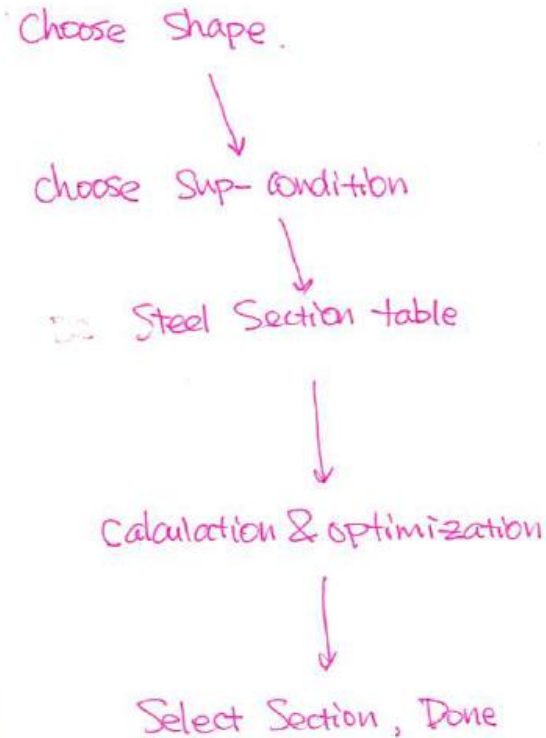 Choose Shape.
Choose Sup-condition
Steel Section table
Calculation & optimization
Select Section, Done